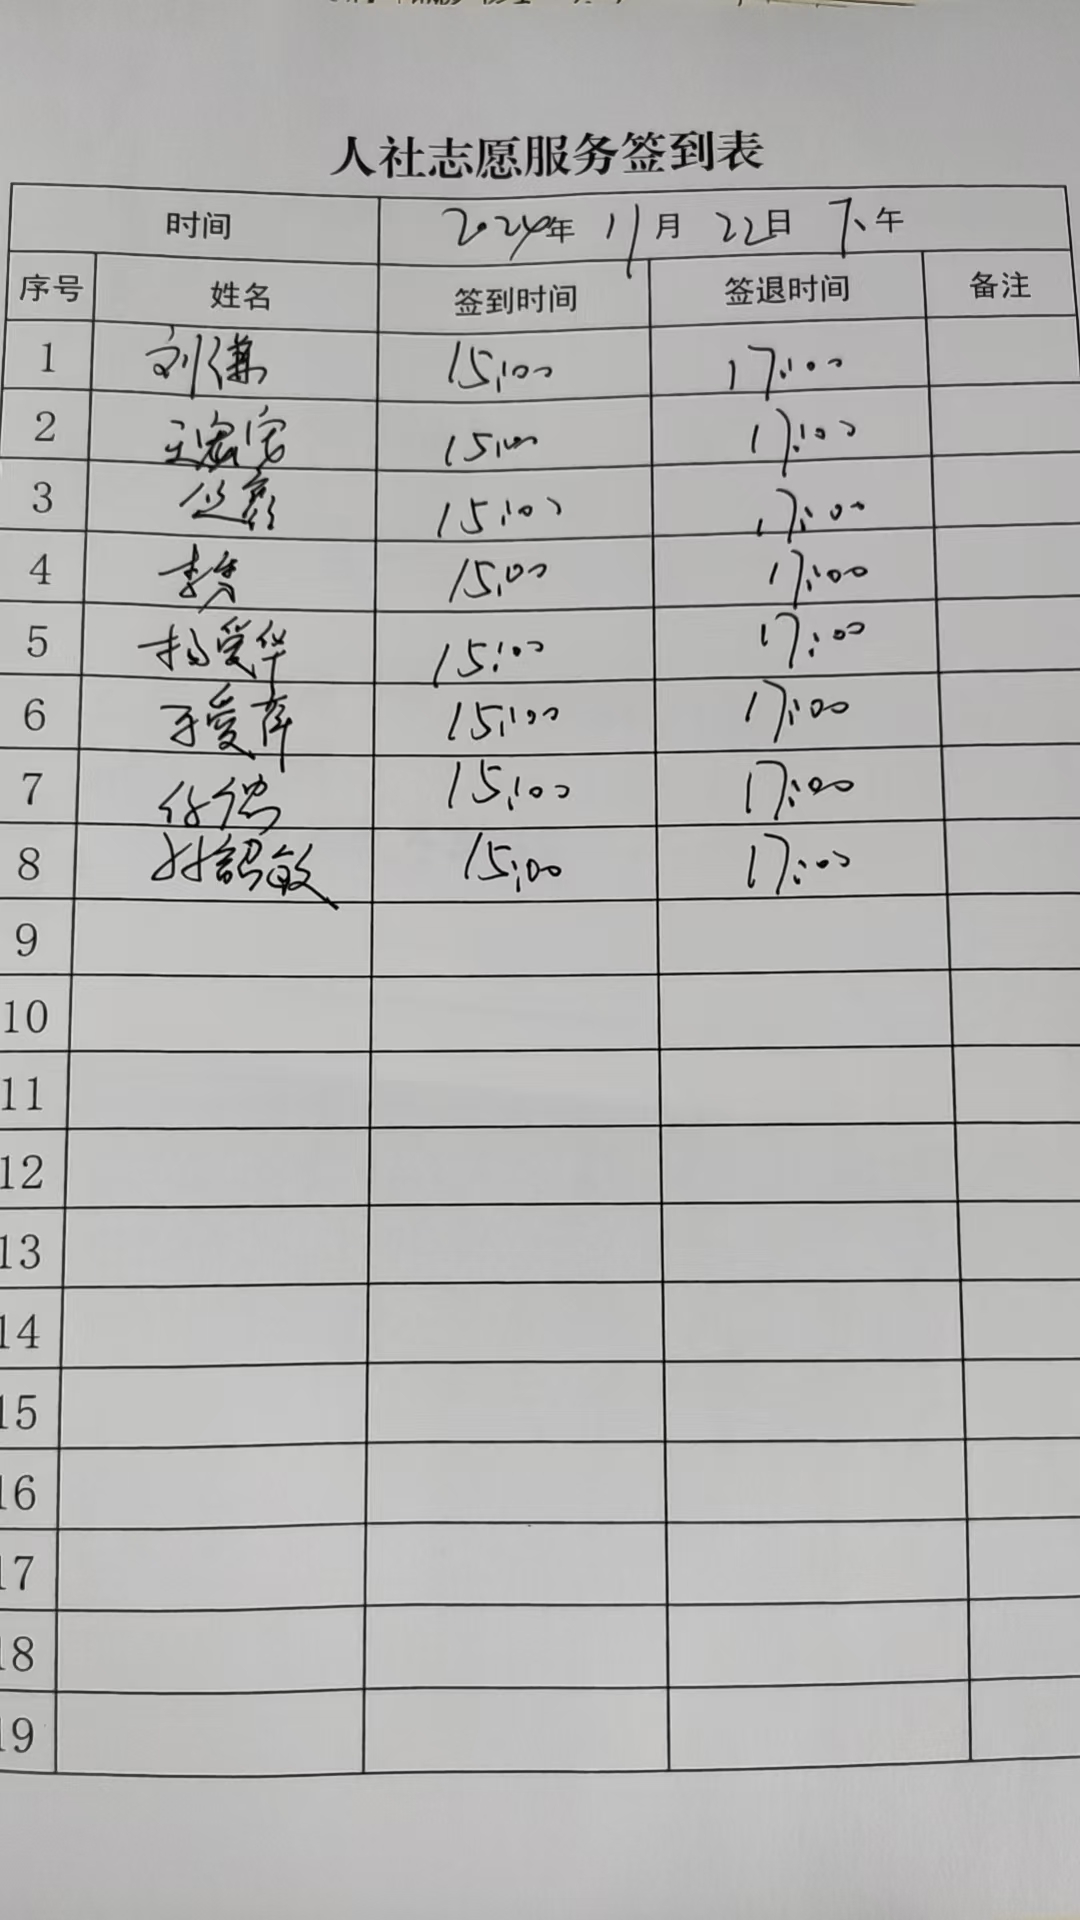 人社志愿服务签到表
时间 2024年 11月 22日 下午
序号 姓名 签到时间 签退时间 备注
1 刘谦 15:00 17:00
2 王宏宇 15:00 17:00
3 15:00 17:00
4 李隽 15:00 17:00
5 杨爱华 15:00 17:00
6 于爱萍 15:00 17:00
7 任德 15:00 17:00
8 孙韶敏 15:00 17:00
9
10
11
12
13
14
15
16
17
18
19